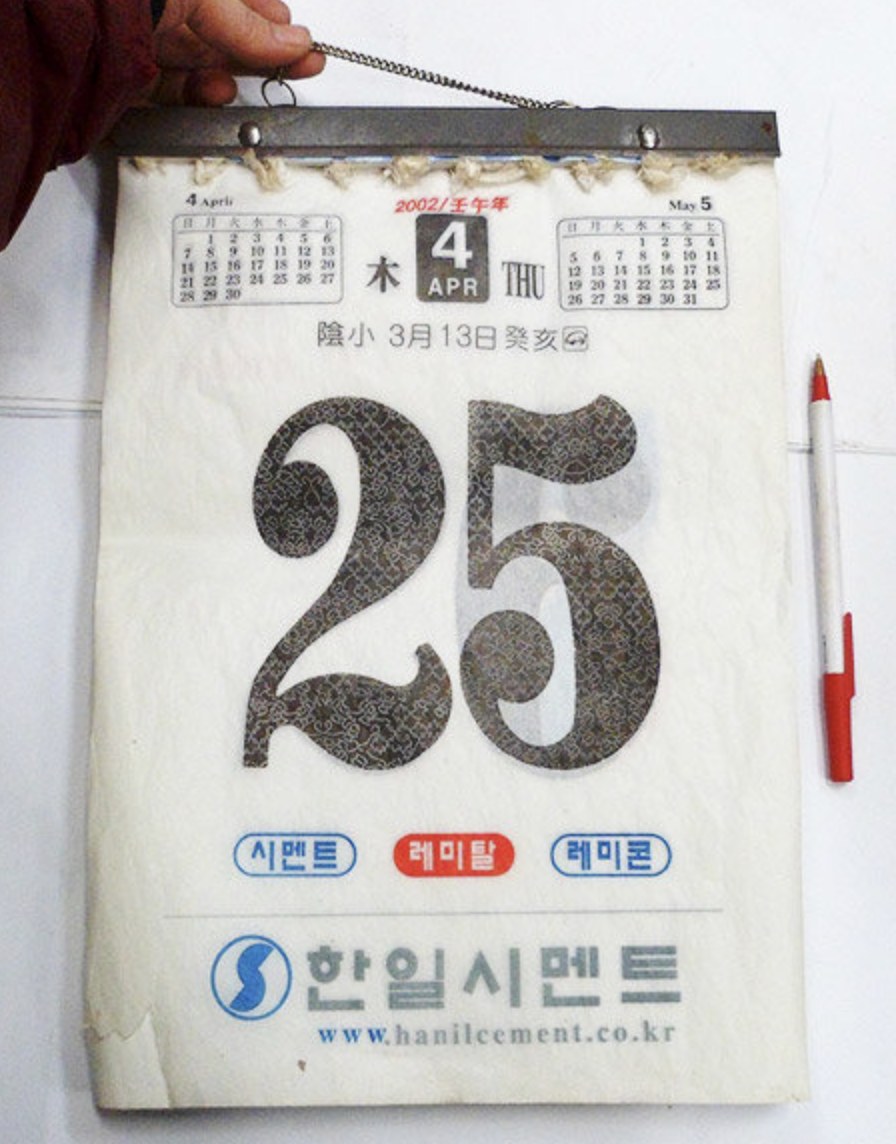 4 April
日 月 火 水 木 金 土
1 2 3 4 5 6
7 8 9 10 11 12 13
14 15 16 17 18 19 20
21 22 23 24 25 26 27
28 29 30
2002/壬午年
木 4 THU
APR
May 5
日 月 火 水 木 金 土
1 2 3 4
5 6 7 8 9 10 11
12 13 14 15 16 17 18
19 20 21 22 23 24 25
26 27 28 29 30 31
陰小 3月13日 癸亥
25
시멘트 레미탈 레미콘
한일시멘트
www.hanilcement.co.kr